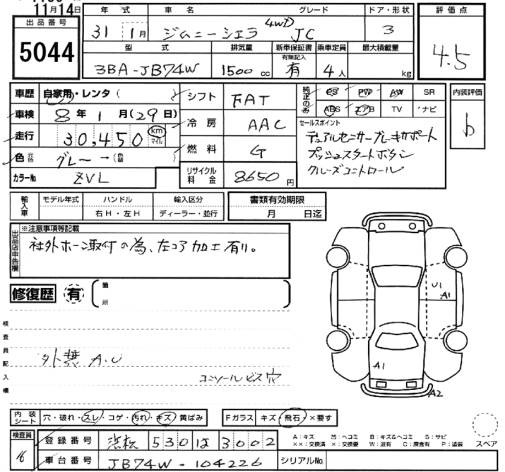 11月14日
出品番号 5044
年式 車名 グレード ドア・形状
31 1月 ジムニーシエラ 4WD JC 3
評価点 4.5
型式 排気量 新車保証書 有無記入 乗車定員 最大積載量
3BA-JB74W 1500 cc 有 4人 kg
車歴 自家用・レンタ シフト FAT 純正のみ PS PW AW SR 内装評価
車検 8年1月(29日) ABS エアB TV ナビ b
冷房 AAC セールスポイント
走行 30,450 km マイル デュアルセンサーブレーキサポート
燃料 G プッシュスタートボタン
色 グレー クルーズコントロール
カラーNo ZVL リサイクル料金 8650円
輸入車 モデル年式 ハンドル 輸入区分 書類有効期限
右H・左H ディーラー・並行 月 日迄
※注意事項等記載
出品店申告欄 社外ホーン取付の為、左コア加工有り。
修復歴 有
U1
A1
検査員記入欄
外装 A.U
コンソールビス穴
A1
A2
内装シート 穴・破れ・スレ・コゲ・汚れ・キズ・黄ばみ Fガラス キズ・飛石・×要す
検査員 16 登録番号 浜松 530 は 3002
A:キズ 凹:ヘコミ B:キズ&ヘコミ S:サビ
××:交換済 ×:交換要 W:波有 C:腐食有 P:塗装 スペア
車台番号 JB74W-104226 シリアルNo